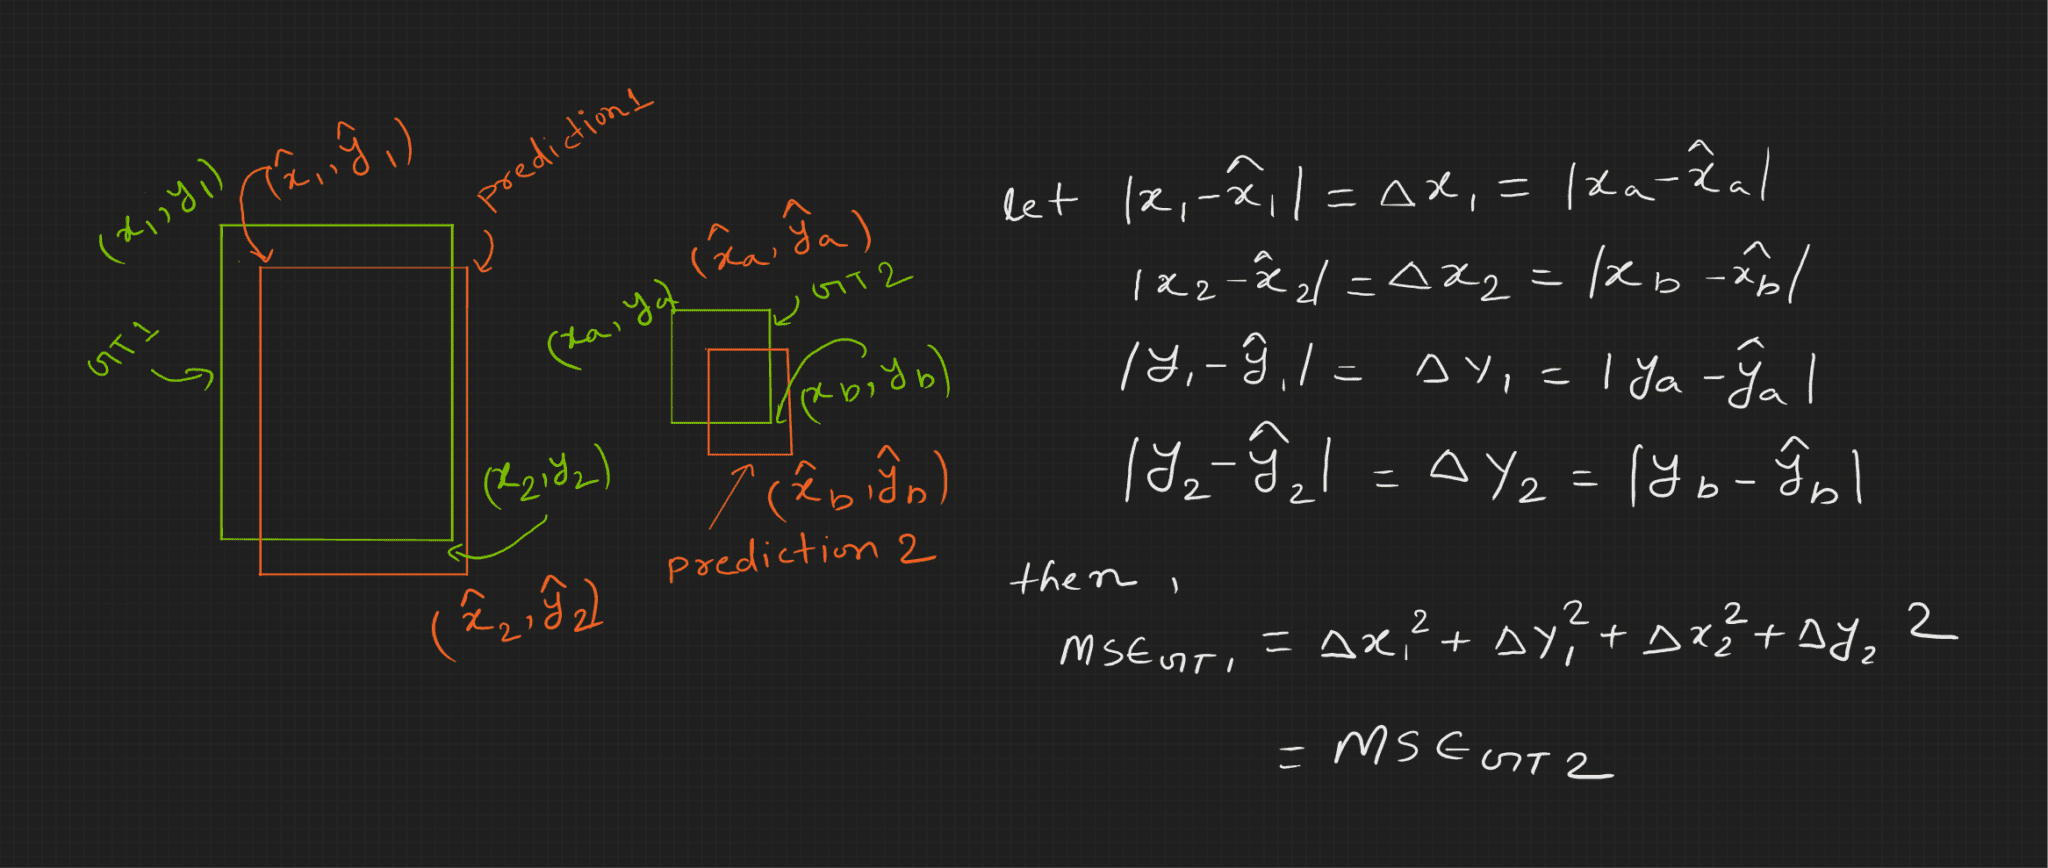 (x₁, y₁)
(x̂₁, ŷ₁)
prediction 1
GT 1
(x₂, y₂)
(x̂₂, ŷ₂)
(x̂a, ŷa)
(xa, ya)
GT 2
(xb, yb)
(x̂b, ŷb)
prediction 2
let |x₁ - x̂₁| = Δx₁ = |xa - x̂a|
|x₂ - x̂₂| = Δx₂ = |xb - x̂b|
|y₁ - ŷ₁| = Δy₁ = |ya - ŷa|
|y₂ - ŷ₂| = Δy₂ = |yb - ŷb|
then,
MSE GT₁ = Δx₁² + Δy₁² + Δx₂² + Δy₂²
= MSE GT 2